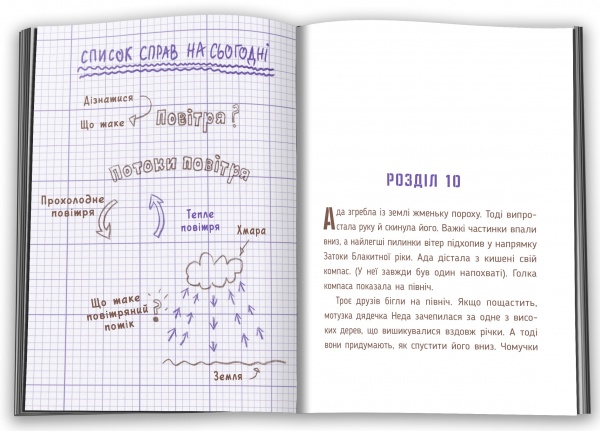 СПИСОК СПРАВ НА СЬОГОДНІ
Дізнатися
Що таке
Повітря?
Потоки повітря
Прохолодне
повітря
Тепле
повітря
Хмара
Що таке
повітряний
потік
?
Земля
РОЗДІЛ 10
Ада згребла із землі жменьку пороху. Тоді випро-
стала руку й скинула його. Важкі частинки впали
вниз, а найлегші пилинки вітер підхопив у напрямку
Затоки Блакитної ріки. Ада дістала з кишені свій
компас. (У неї завжди був один напохваті). Голка
компаса показала на північ.
Троє друзів бігли на північ. Якщо пощастить,
мотузка дядечка Неда зачепилася за одне з висо-
ких дерев, що вишикувалися вздовж річки. А тоді
вони придумають, як спустити його вниз. Чомучки